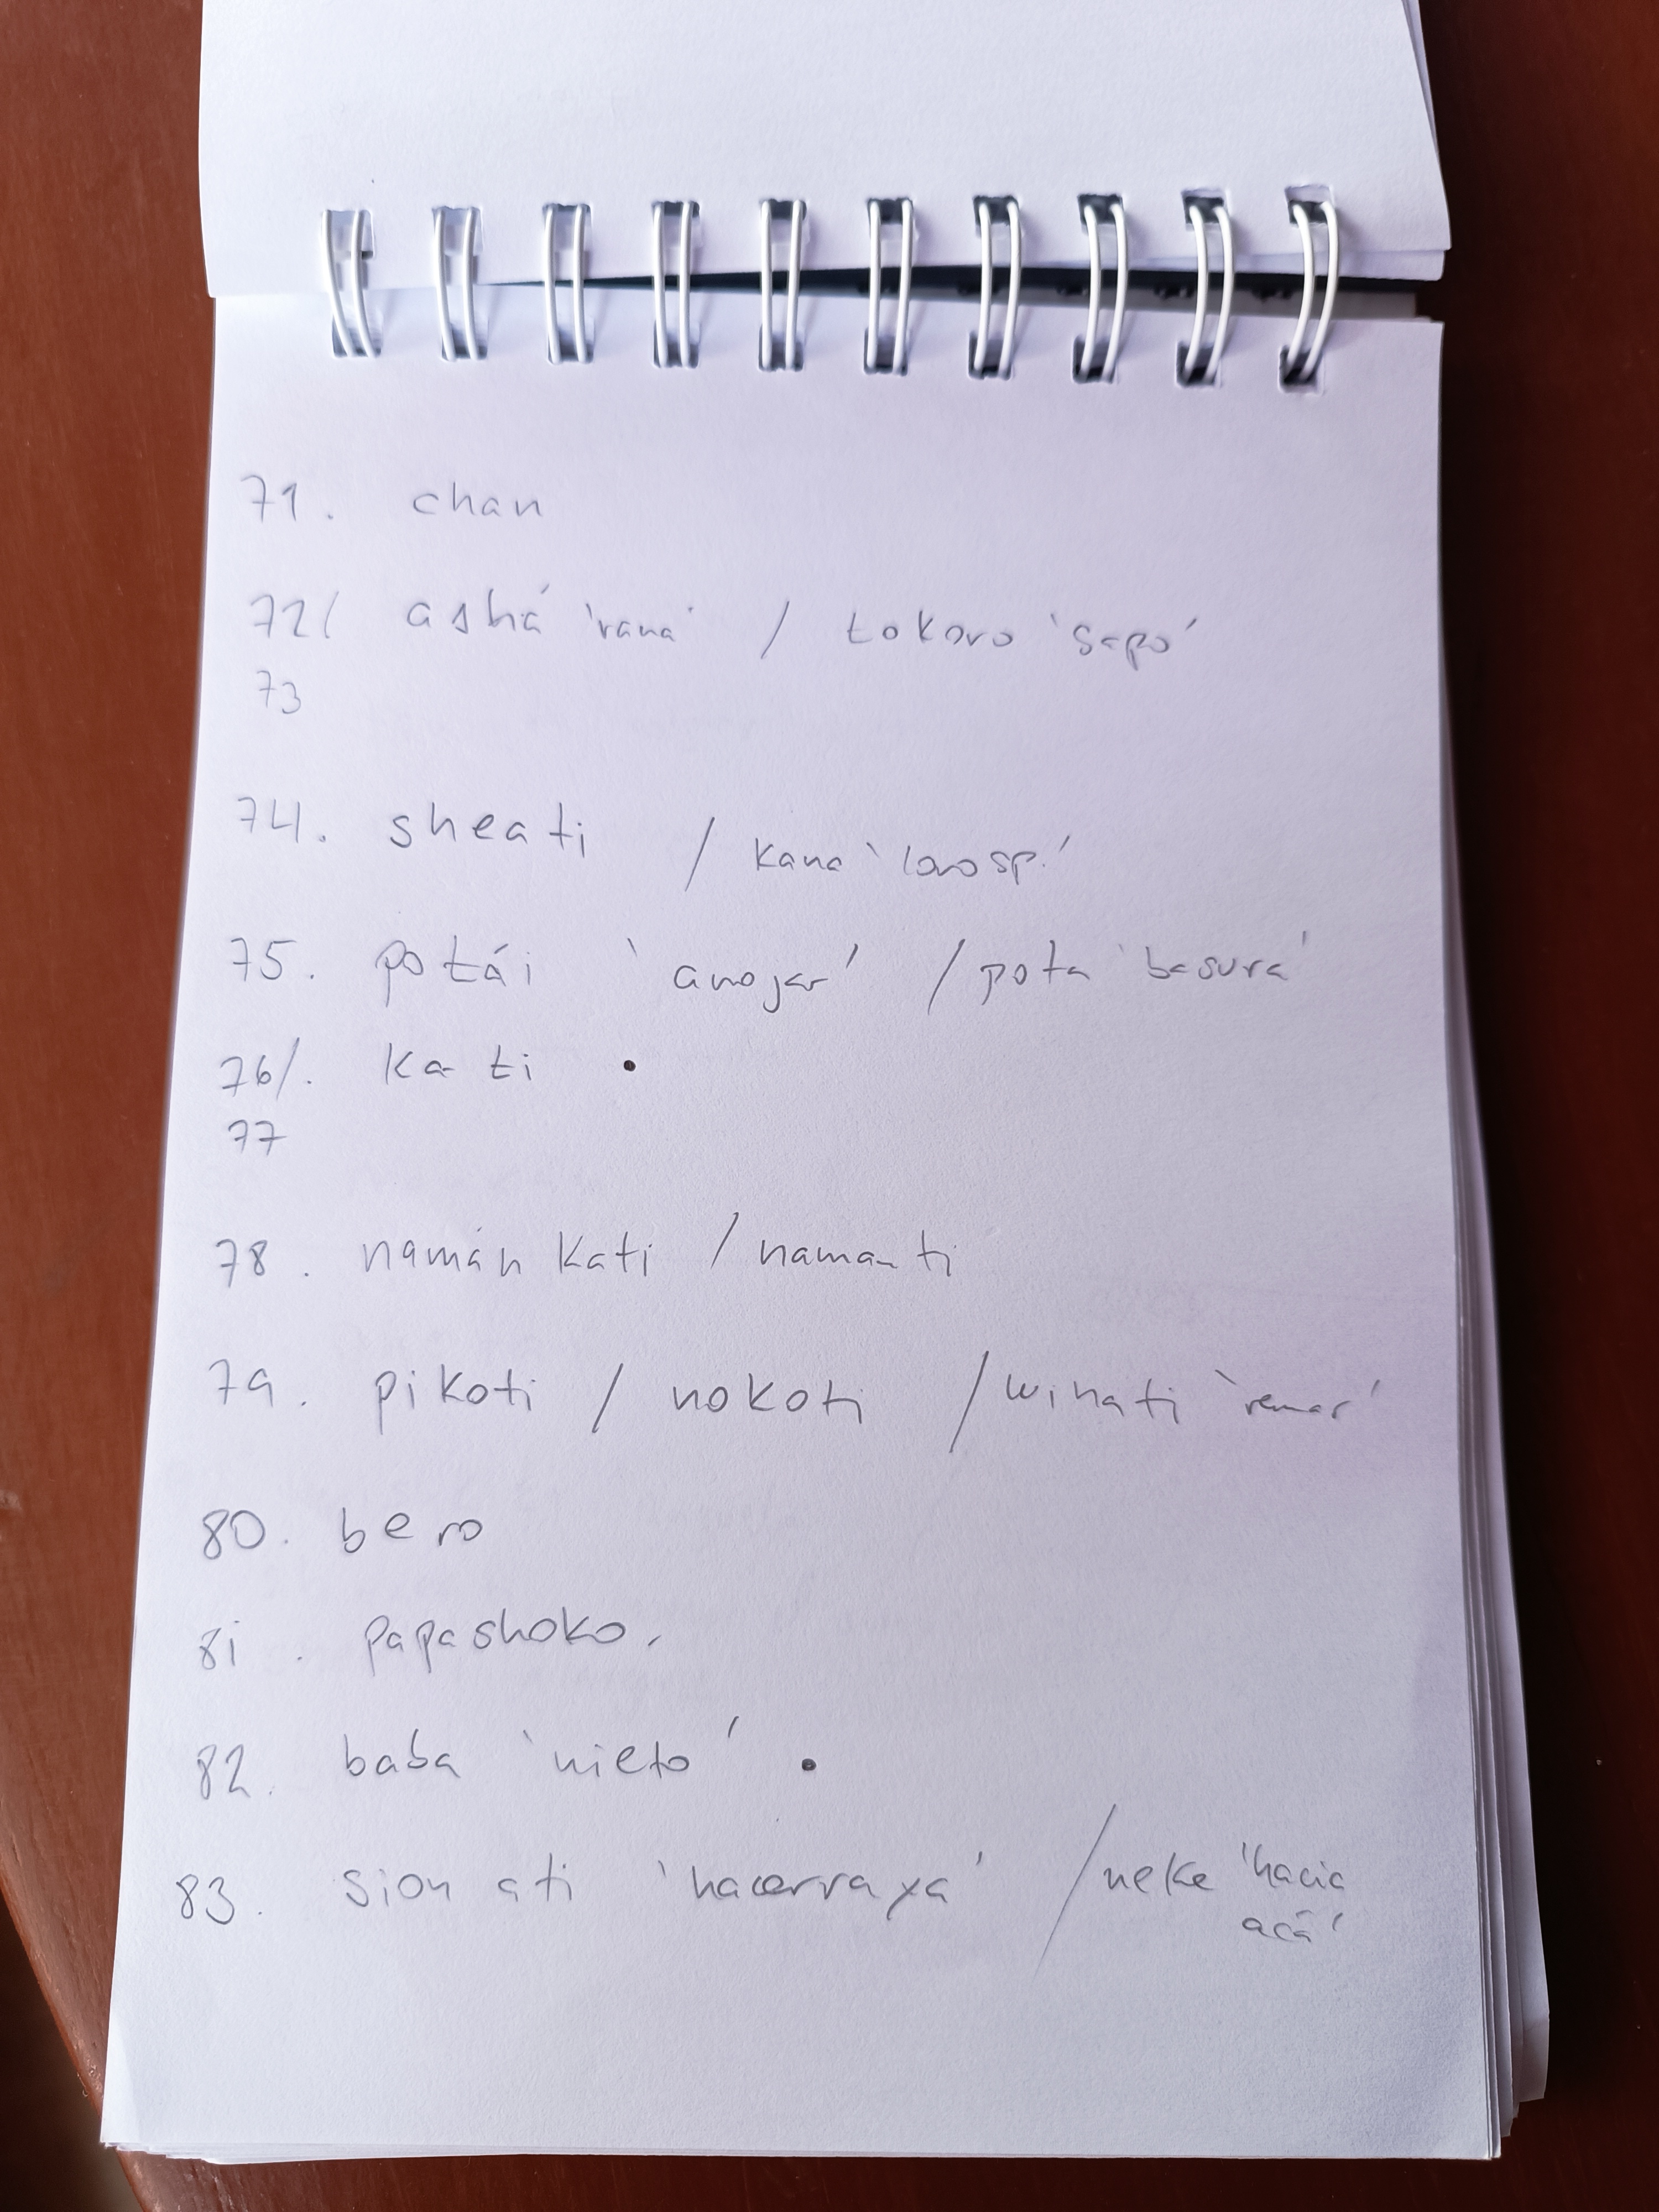 71. chan
72/ ashá 'rana' / tokoro 'sapo'
73
74. sheati / kana 'loro sp.'
75. potái 'arrojar' / pota 'basura'
76/. kati
77
78. namán kati / namanti
79. pikoti / nokoti / winati 'remar'
80. bero
81. papashoko.
82. baba 'nieto'
83. sion ati 'hacer raya' / neke 'hacia
acá'